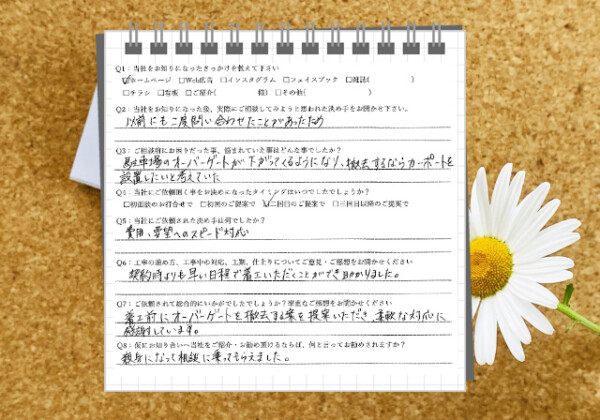 Q1：当社をお知りになったきっかけを教えて下さい
☑ホームページ □Web広告 □インスタグラム □フェイスブック □雑誌( )
□チラシ □看板 □ご紹介( 様) □その他( )
Q2：当社をお知りになった後、実際にご相談してみようと思われた決め手をお聞かせ下さい。
以前にも二度問い合わせたことがあったため
Q3：ご相談前にお困りだった事、悩まれていた事はどんな事でしたか？
駐車場のオーバーゲートが下がってくるようになり、撤去するならカーポートを
設置したいと考えていた
Q4：当社にご依頼頂く事をお決めになったタイミングはいつでしたでしょうか？
□初面談のお打合せで □初回のご提案で ☑二回目のご提案で □三回目以降のご提案で
Q5：当社にご依頼された決め手は何でしたか？
費用、要望へのスピード対応
Q6：工事の進め方、工事中の対応、工期、仕上りについてご意見・ご感想をお聞かせください
契約時よりも早い日程で着工いただくことができ助かりました。
Q7：ご依頼されて総合的にいかがでしたでしょうか？率直なご感想をお聞かせください
着工前にオーバーゲートを撤去する案を提案いただき 柔軟な対応に
感謝しています。
Q8：仮にお知り会いへ当社をご紹介・お勧め頂けるならば、何と言ってお勧めされますか？
親身になって相談に乗ってもらえました。